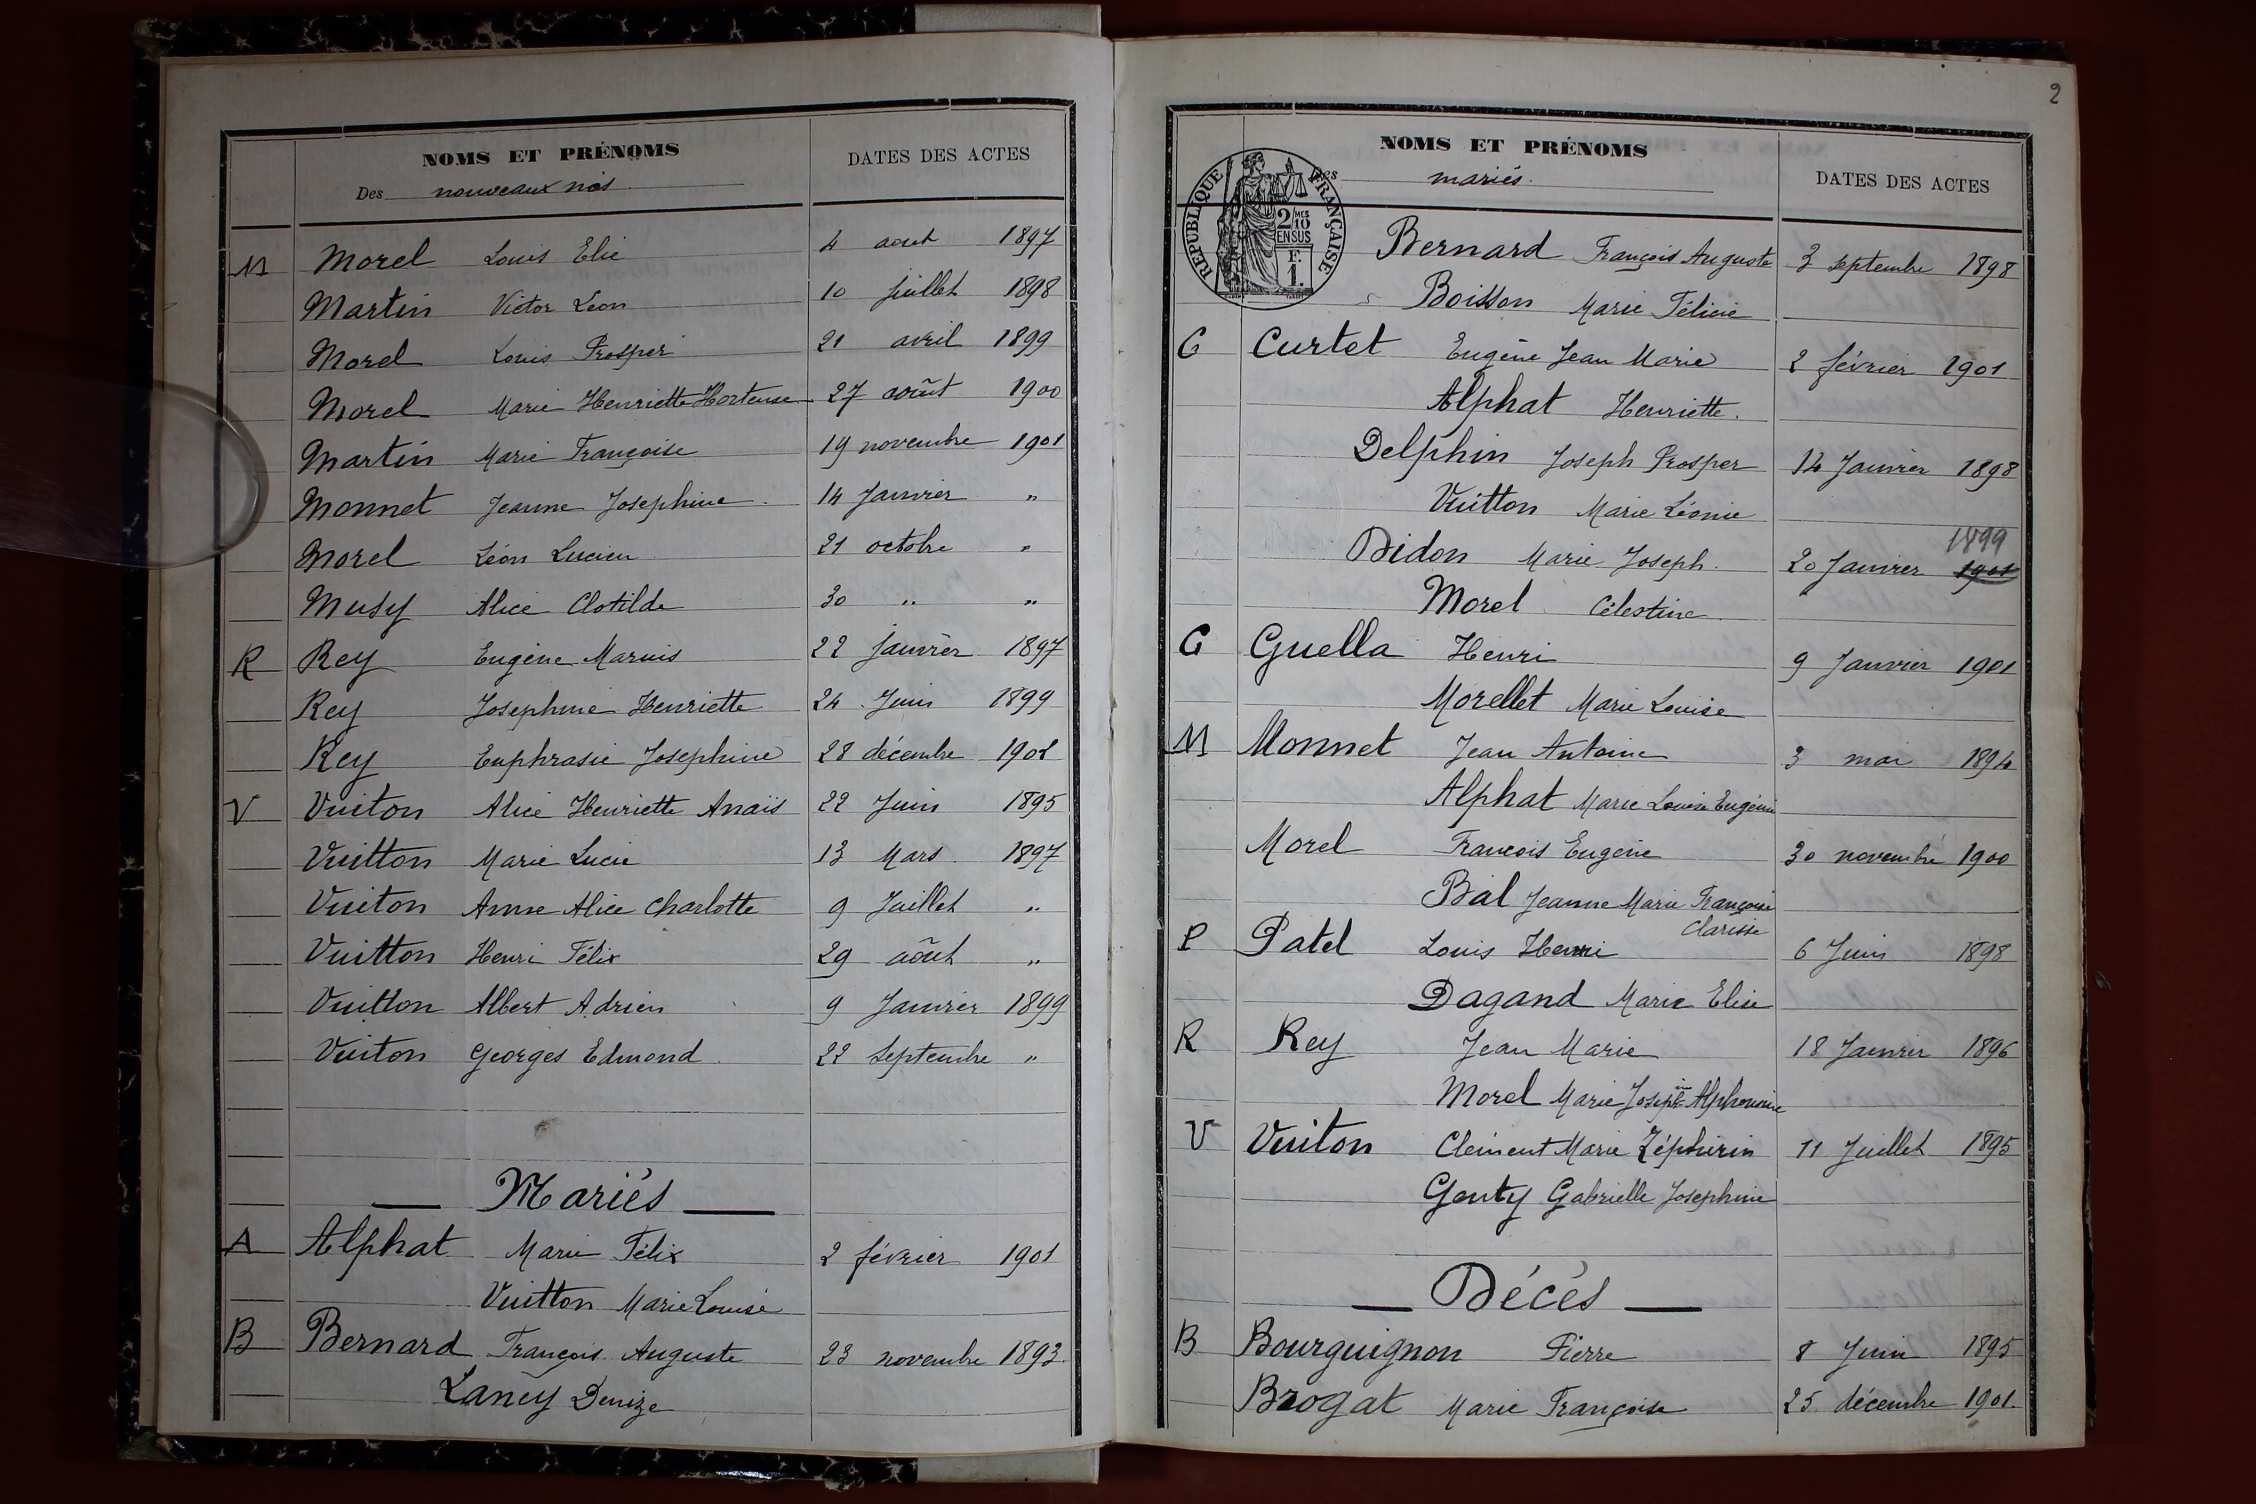 NOMS ET PRÉNOMS
DATES DES ACTES
Des nouveaux nés
M Morel Louis Elie 4 aout 1897
Martin Victor Léon 10 juillet 1898
Morel Louis Prosper 21 avril 1899
Morel Marie Henriette Hortense 27 août 1900
Martin Marie Françoise 19 novembre 1901
Monnet Jeanne Josephine 14 Janvier "
Morel Léon Lucien 21 octobre "
Musy Alice Clotilde 30 " "
R Rey Eugène Marius 22 janvier 1897
Rey Josephine Henriette 24 Juin 1899
Rey Euphrasie Josephine 28 décembre 1901
V Vuiton Alice Henriette Anaïs 22 Juin 1895
Vuitton Marie Lucie 13 Mars 1897
Vuiton Anne Alice Charlotte 9 Juillet "
Vuitton Henri Félix 29 août "
Vuitton Albert Adrien 9 Janvier 1899
Vuiton Georges Edmond 22 Septembre "
— Mariés —
A Alphat Marie Félix 2 février 1901
Vuitton Marie Louise
B Bernard François Auguste 23 novembre 1893
Lancy Denize
2
NOMS ET PRÉNOMS
DATES DES ACTES
Des mariés.
RÉPUBLIQUE FRANÇAISE
2/10 MES
EN SUS
F.
1.
Bernard François Auguste 3 septembre 1898
Boisson Marie Félicie
C Curtet Eugène Jean Marie 2 février 1901
Alphat Henriette.
Delphin Joseph Prosper 14 Janvier 1898
Vuitton Marie Léonie
1899
Didon Marie Joseph. 20 Janvier 1901
Morel Célestine
G Guella Henri 9 Janvier 1901
Morellet Marie Louise
M Monnet Jean Antoine 3 mai 1894
Alphat Marie Louise Eugénie
Morel François Eugène 30 novembre 1900
Bal Jeanne Marie Françoise
Clarisse
P Patel Louis Henri 6 Juin 1898
Dagand Marie Elise
R Rey Jean Marie 18 Janvier 1896
Morel Marie Josephine Alphonsine
V Vuiton Clément Marie Zéphirin 11 Juillet 1895
Genty Gabrielle Josephine
— Décès —
B Bourguignon Pierre 8 Juin 1895
Brogat Marie Françoise 25 décembre 1901.